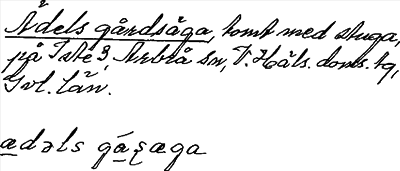 Ådels gårdsåga, tomt med stuga,
på Iste 3, Arbrå sn, V. Häls. doms. hg,
Gvl. län.
ædəls gáʂæga